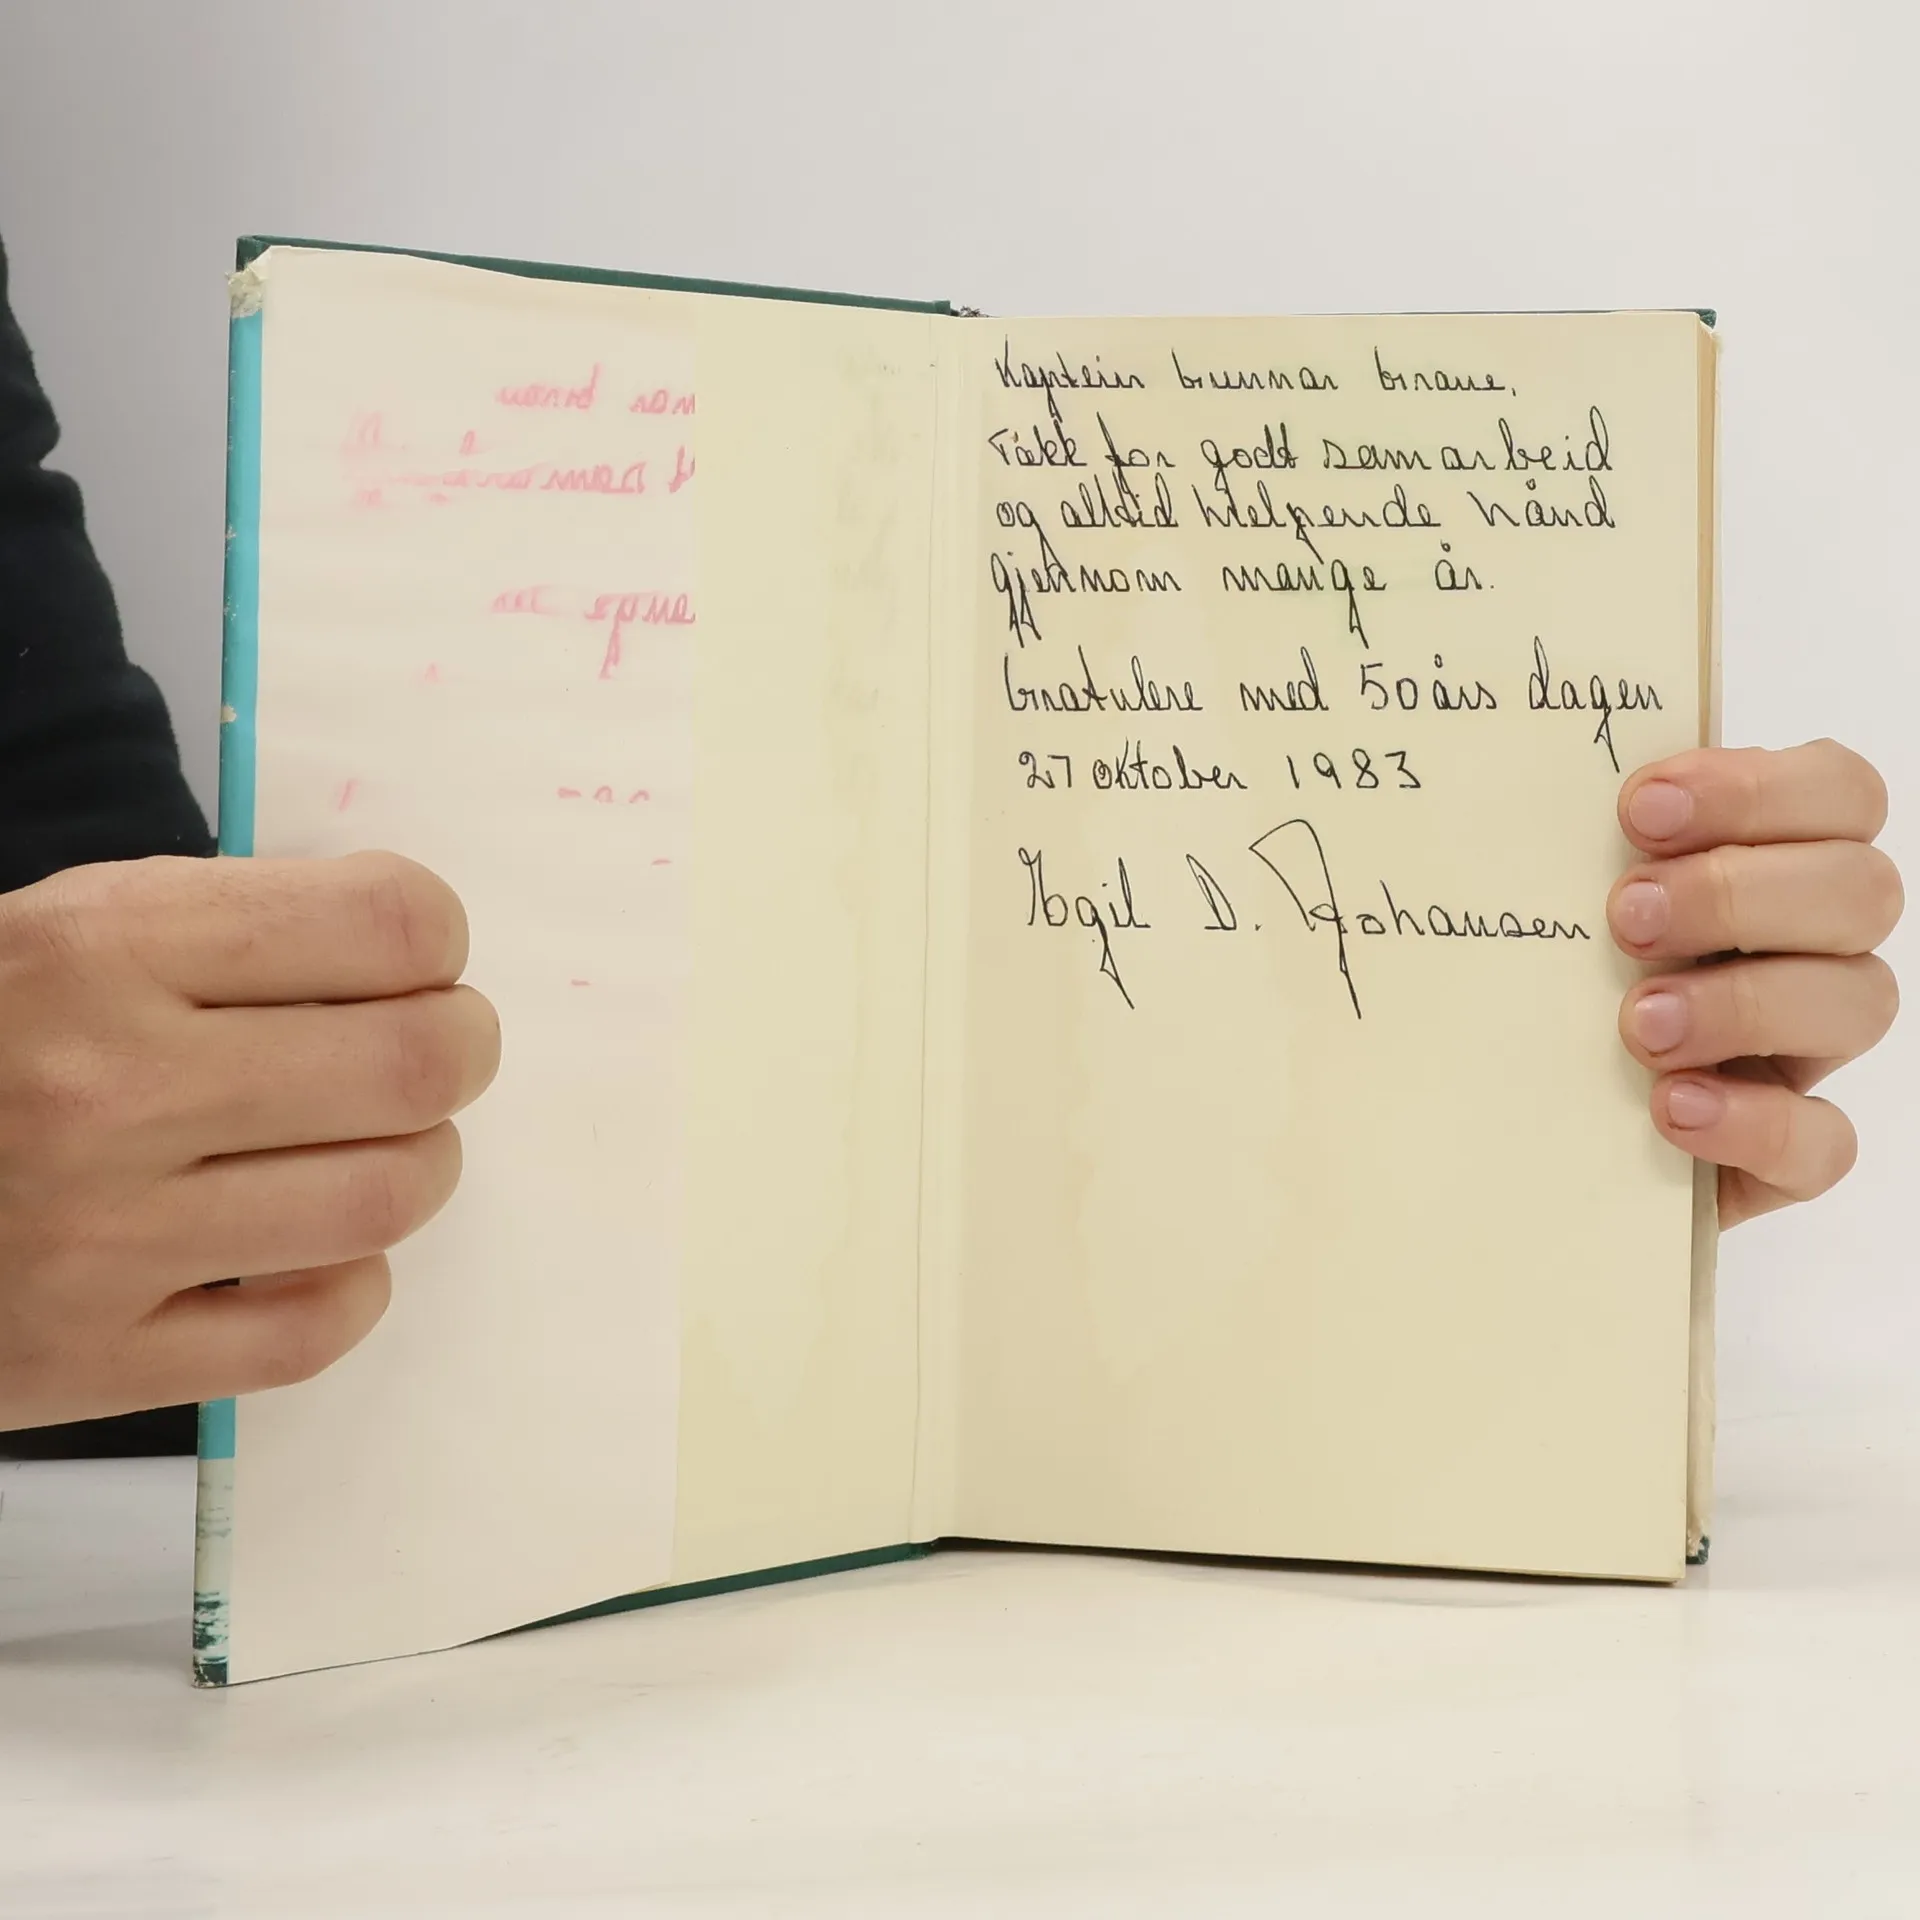 Kaptein Gunnar Graue.
Takk for godt samarbeid
og alltid hielpende hånd
gjennom mange år.
Gratulere med 50 års dagen
27 oktober 1983
Egil D. Johansen